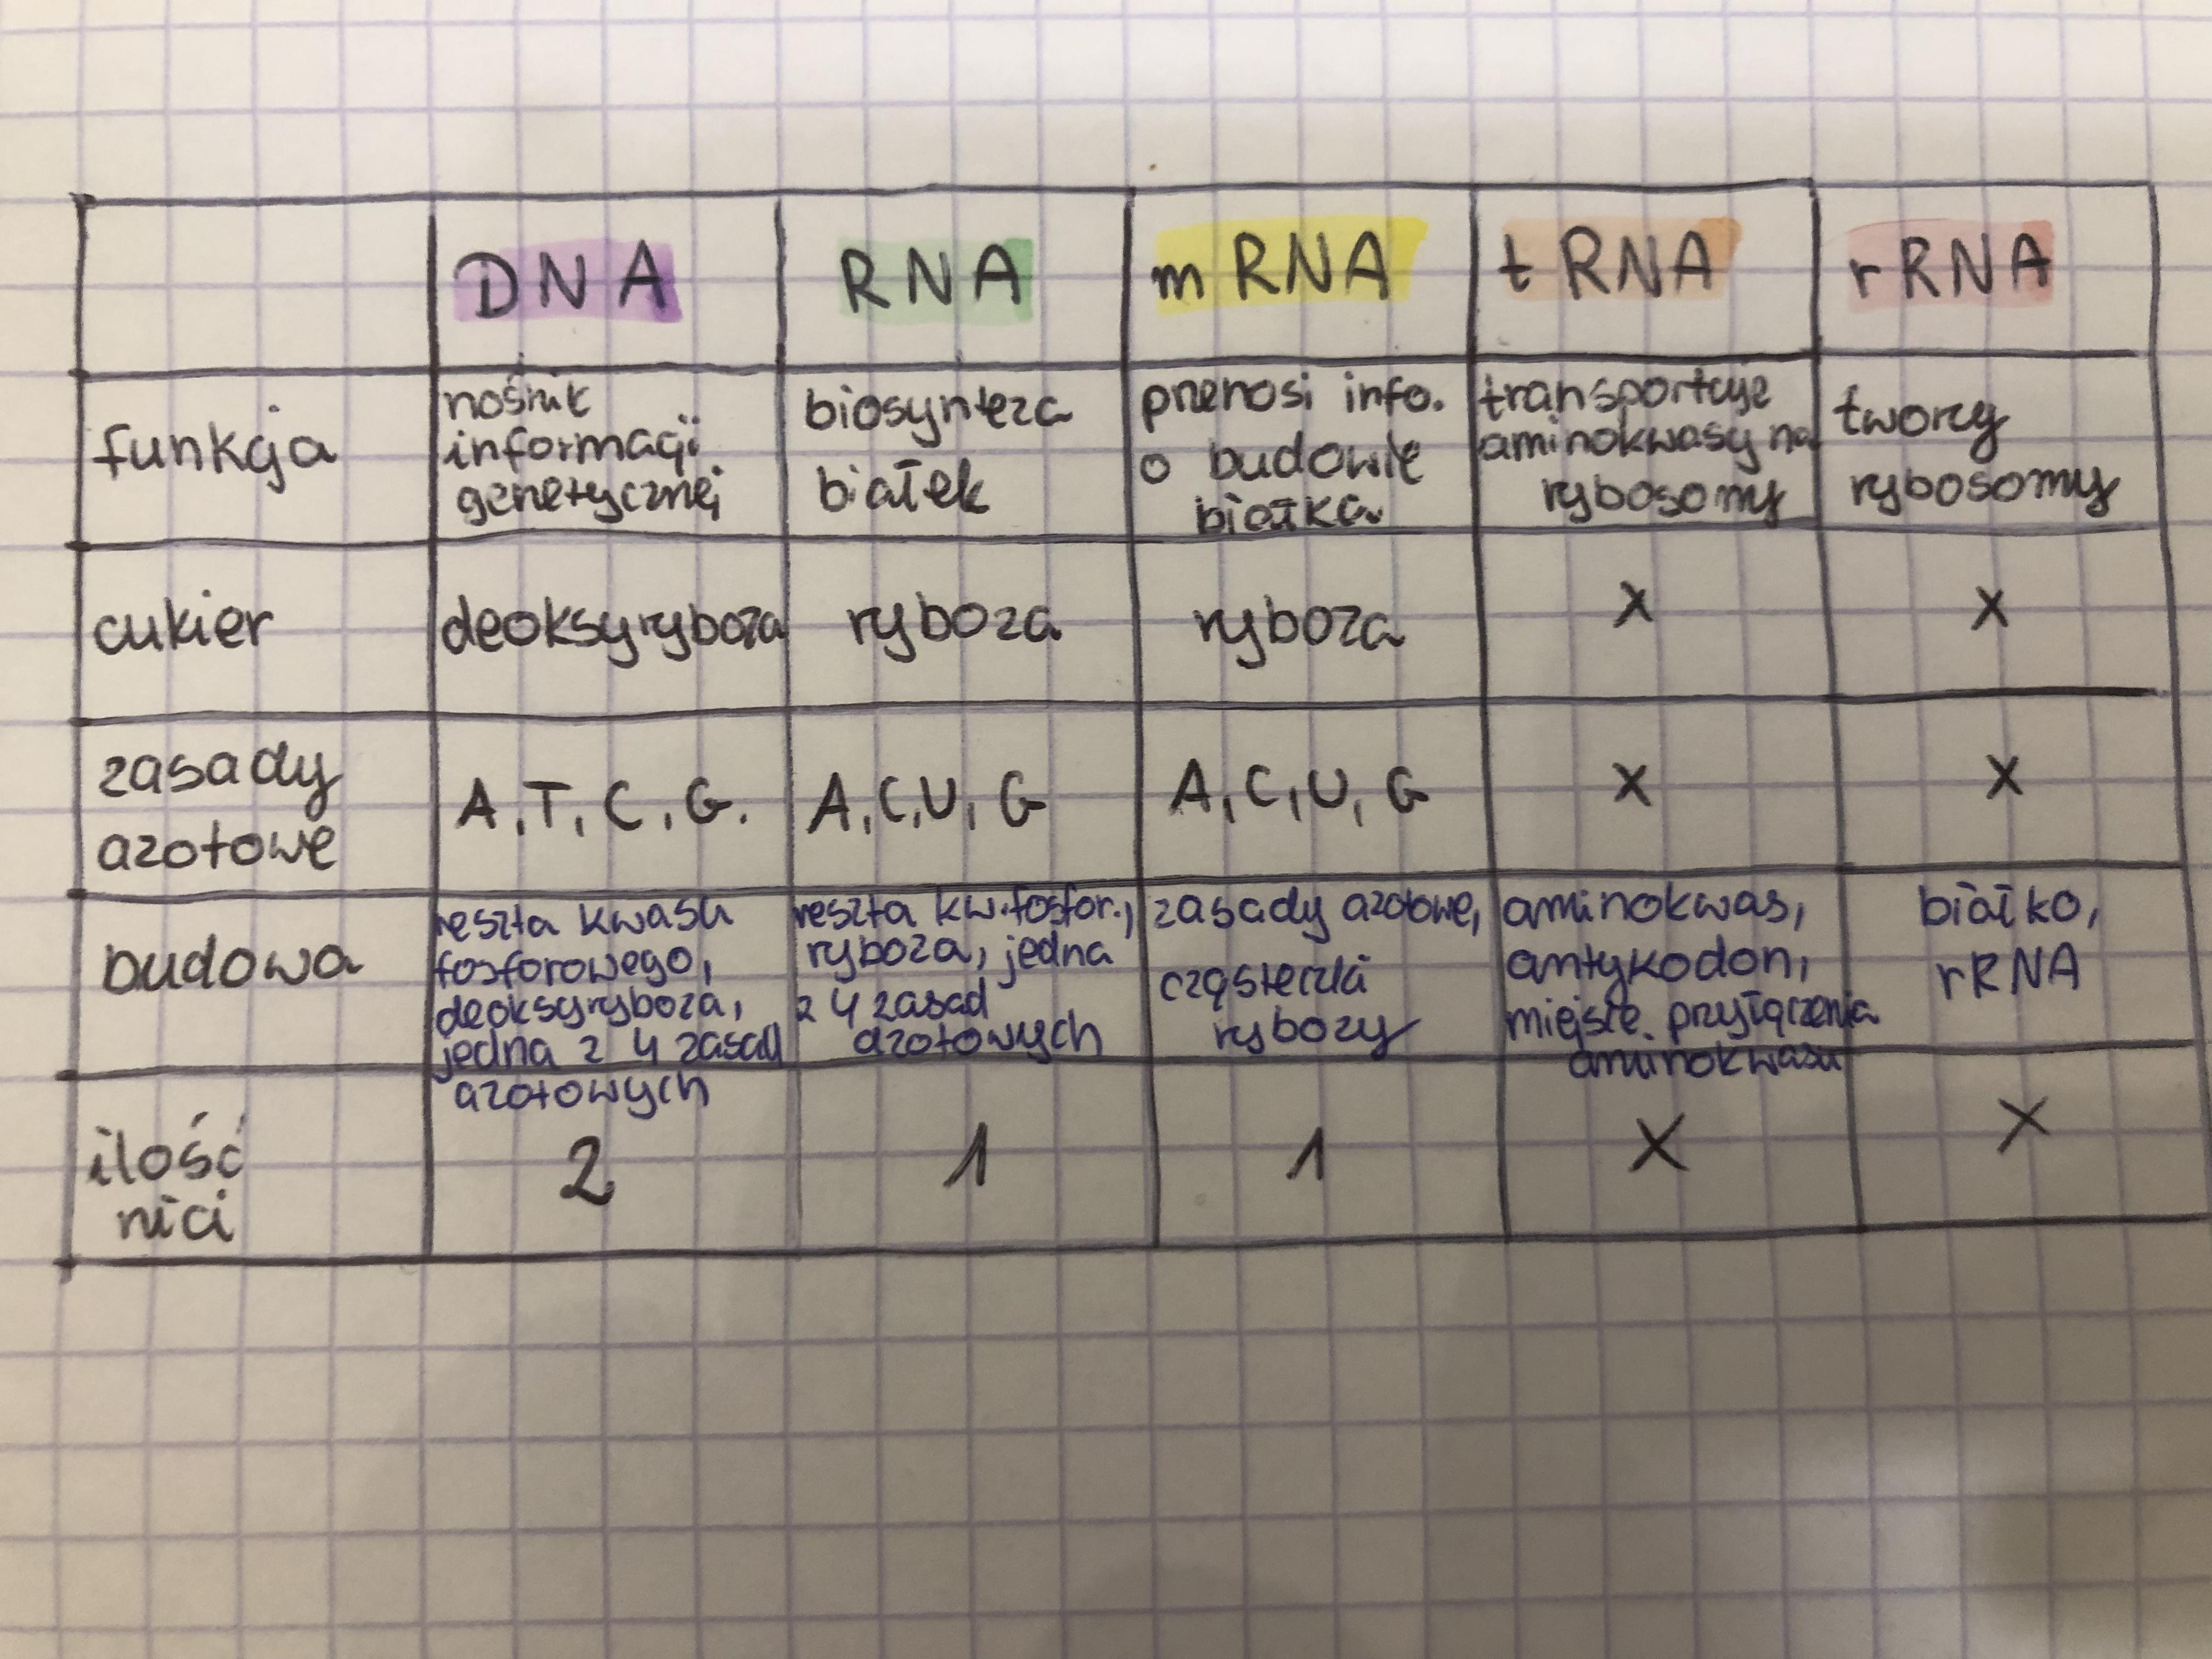 DNA RNA mRNA tRNA rRNA
funkcja
nośnik
informacji
genetycznej
biosynteza
białek
przenosi info.
o budowie
białka
transportuje
aminokwasy na
rybosomy
tworzy
rybosomy
cukier
deoksyryboza
ryboza
ryboza
x
x
zasady
azotowe
A, T, C, G.
A, C, U, G
A, C, U, G
x
x
budowa
reszta kwasu
fosforowego,
deoksyryboza,
jedna z 4 zasad
azotowych
reszta kw. fosfor.,
ryboza, jedna
z 4 zasad
azotowych
zasady azotowe,
cząsteczki
rybozy
aminokwas,
antykodon,
miejsce przyłączenia
aminokwasu
białko,
rRNA
ilość
nici
2
1
1
X
X